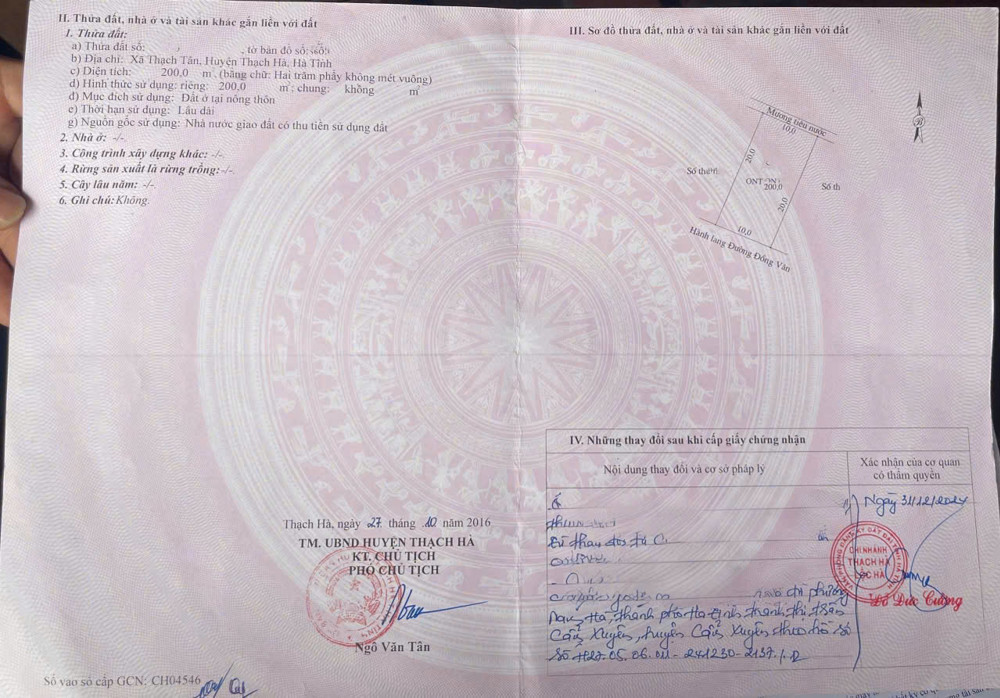 II. Thửa đất, nhà ở và tài sản khác gắn liền với đất
1. Thửa đất:
a) Thửa đất số: , tờ bản đồ số:
b) Địa chỉ: Xã Thạch Tân, Huyện Thạch Hà, Hà Tĩnh
c) Diện tích: 200,0 m², (bằng chữ: Hai trăm phẩy không mét vuông)
d) Hình thức sử dụng: riêng: 200,0 m²; chung: không m²
đ) Mục đích sử dụng: Đất ở tại nông thôn
e) Thời hạn sử dụng: Lâu dài
g) Nguồn gốc sử dụng: Nhà nước giao đất có thu tiền sử dụng đất
2. Nhà ở: -/-
3. Công trình xây dựng khác: -/-
4. Rừng sản xuất là rừng trồng: -/-
5. Cây lâu năm: -/-
6. Ghi chú: Không.
Thạch Hà, ngày 27 tháng 10 năm 2016
TM. UBND HUYỆN THẠCH HÀ
KT. CHỦ TỊCH
PHÓ CHỦ TỊCH
Ngô Văn Tân
Số vào sổ cấp GCN: CH04546
III. Sơ đồ thửa đất, nhà ở và tài sản khác gắn liền với đất
B
Mương tiêu nước
10,0
20,0
Số
ONT
200,0
Số th
20,0
10,0
Hành lang Đường Đồng Văn
IV. Những thay đổi sau khi cấp giấy chứng nhận
Nội dung thay đổi và cơ sở pháp lý
Xác nhận của cơ quan có thẩm quyền
Ngày 31/12/2024
CHI NHÁNH
THẠCH HÀ
LỘC HÀ
Lê Đức Cường
phường
Nam Hà, thành phố Hà Tĩnh thành thị trấn
Cẩm Xuyên, huyện Cẩm Xuyên theo hồ sơ
số H27.05.06.